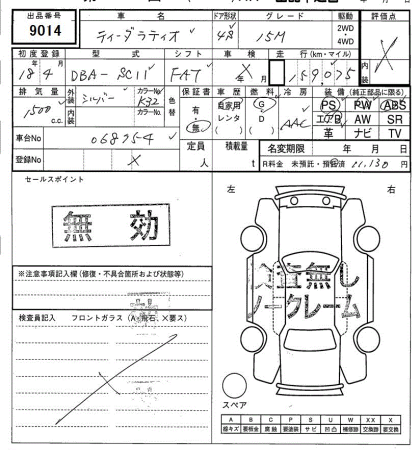 出品番号 車名 ドア形状 グレード 駆動 評価点
9014 ティーダラティオ 4B 15M 2WD・4WD 内装
初度登録 型式 シフト 車検 走行(km・マイル)
18年4月 DBA-SC11 FAT ×年 月 159,075
排気量 外装 シルバー カラーNo K32 色替 保証書 車歴 燃料 冷房 装備(純正部品に限る)
1500 c.c. 内装 カラーNo 有・無 自家用 レンタ ( ) G D ( ) AAC PS PW ABS
エアB AW SR
革 ナビ TV
車台No 068254 定員 人 積載量 t 名変期限 年 月 日
登録No × R料金 未預託・預託済 11,130 円
セールスポイント 左 右
無効
検査無し
ノークレーム
※注意事項記入欄(修復・不具合箇所および状態等)
検査員記入 フロントガラス(A・飛石、×要ス)
スペア
A B C P S U W X XX
線キズ 要板金 腐蝕 要塗装 サビ 凹凸 補修跡 要交換 交換跡